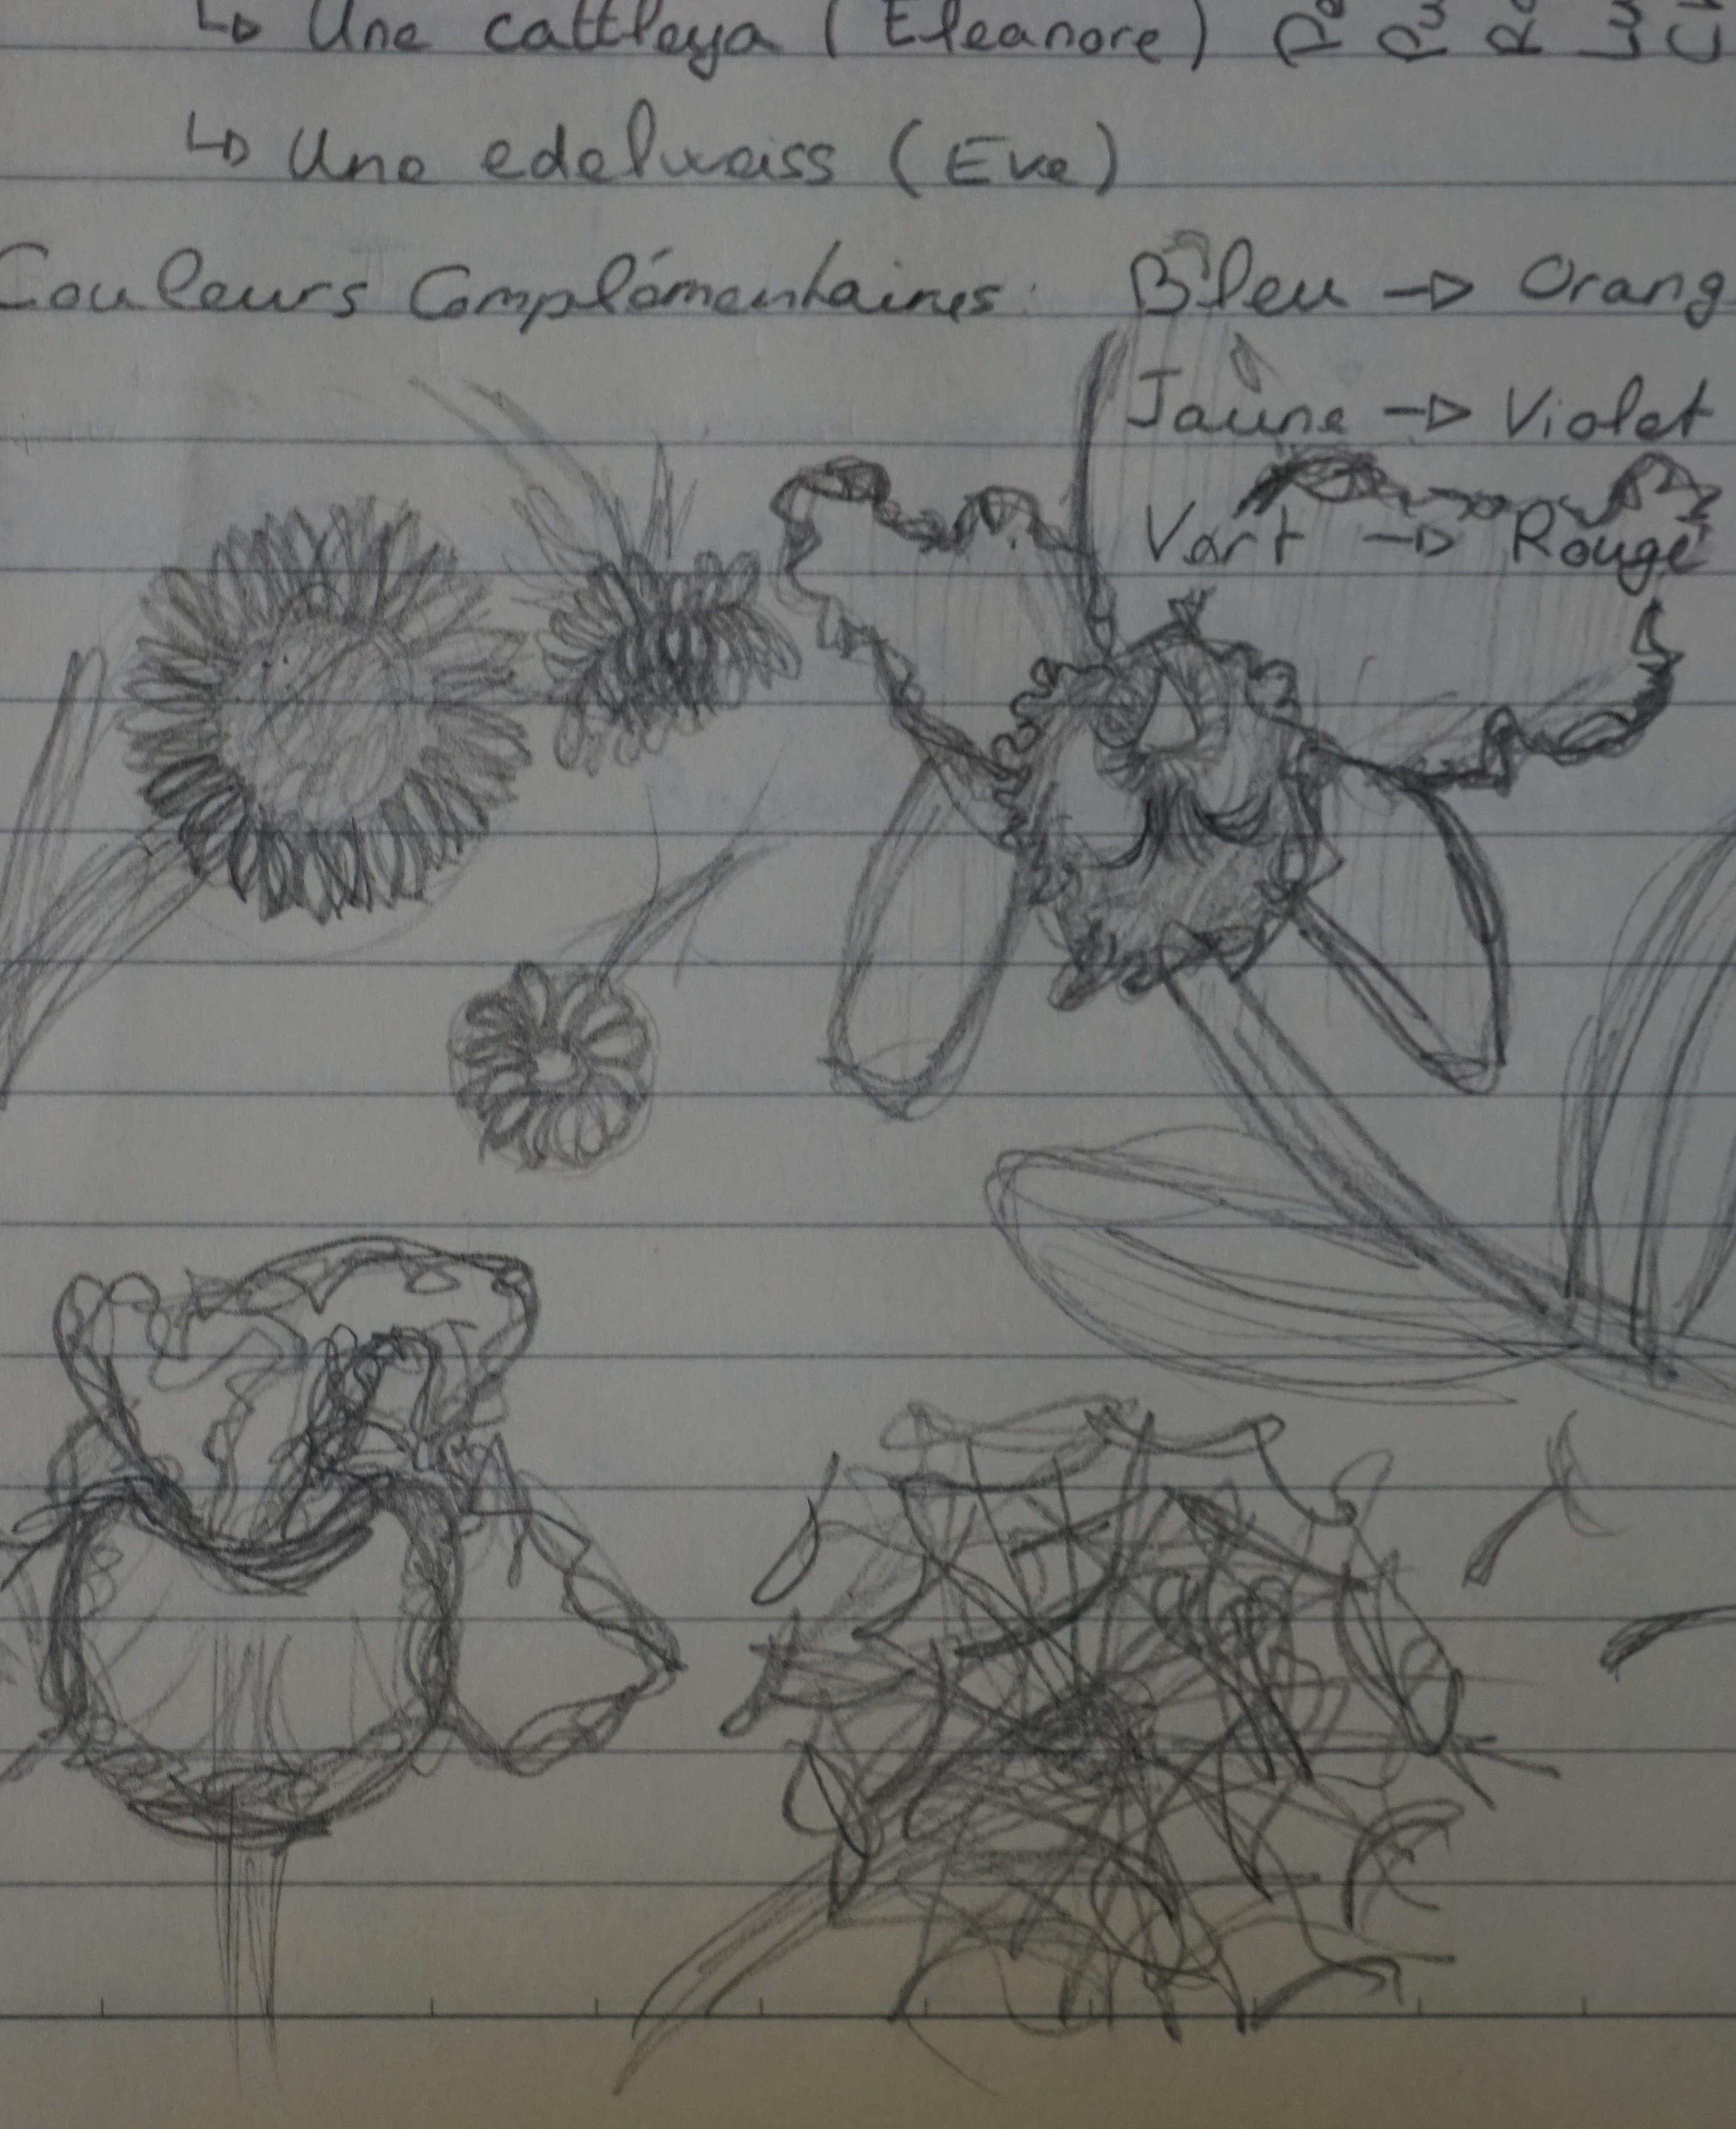 ↳ Une cattleya (Eleanore)
↳ Une edelweiss (Eve)
Couleurs Complémentaires: Bleu → Orang
Jaune → Violet
Vert → Rouge